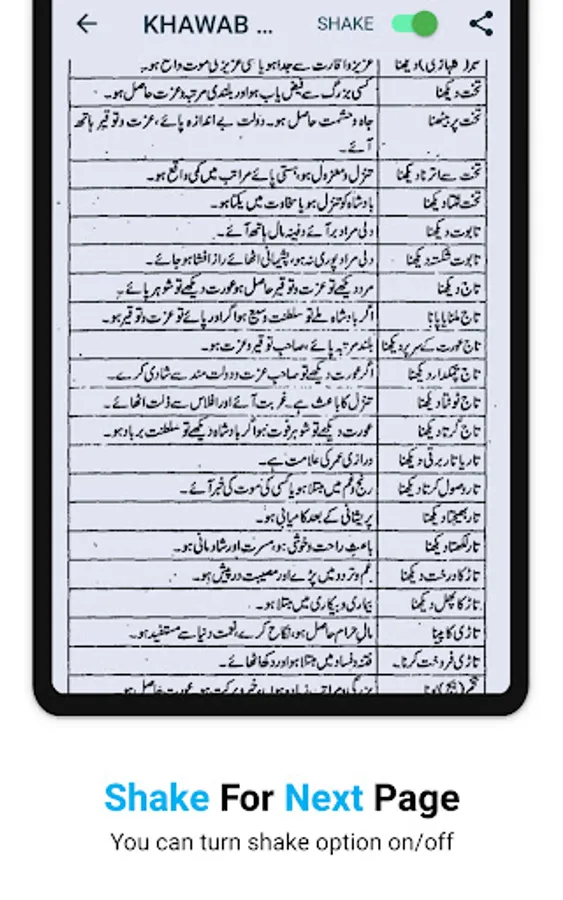 KHAWAB ... SHAKE
عزیز و اقارت سے جدا ہو یا کسی عزیز کی موت واقع ہو۔
تخت دیکھنا کسی بزرگ سے فیض یاب ہو اور بلندی مرتبہ و عزت حاصل ہو۔
تخت پر بیٹھنا جاہ و حشمت حاصل ہو۔ دولت بے اندازہ پائے، عزت و توقیر ہاتھ
آئے۔
تخت سے اترنا دیکھنا تنزل و معزول ہو، پستی پائے مراتب میں کمی واقع ہو۔
تخت دیکھنا بادشاہ کو تنزل ہو یا سخاوت میں یکتا ہو۔
تابوت دیکھنا دلی مراد بر آئے دفینہ مال ہاتھ آئے۔
تابوت شکستہ دیکھنا دلی مراد پوری نہ ہو، پشیمانی اٹھائے راز افشا ہو جائے۔
تاج دیکھنا مرد دیکھے تو عزت و توقیر حاصل ہو عورت دیکھے تو شوہر پائے۔
تاج ملنا یا پانا اگر بادشاہ ملے تو سلطنت وسیع ہو اگر اور پائے تو عزت و توقیر ہو۔
تاج عورت کے سر پر دیکھنا بلند مرتبہ پائے، صاحب توقیر و عزت ہو۔
تاج چمکدار دیکھنا اگر عورت دیکھے تو صاحب عزت و دولت مند سے شادی کرے۔
تاج ٹوٹنا دیکھنا تنزل کا باعث ہے۔ غربت آئے اور افلاس سے ذلت اٹھائے۔
تاج گرتا دیکھنا عورت دیکھے تو شوہر فوت ہو اگر بادشاہ دیکھے تو سلطنت برباد ہو۔
تار یا تار برقی دیکھنا درازی عمر کی علامت ہے۔
تار وصول کرتا دیکھنا رنج و غم میں مبتلا ہو یا کسی کی موت کی خبر آئے۔
تار بھیجتا دیکھنا پریشانی کے بعد کامیابی ہو۔
تار لکھتا دیکھنا باعث راحت و خوشی ہو، مسرت اور شادمانی ہو۔
تاڑ کا درخت دیکھنا غم و تردد میں پڑے اور مصیبت درپیش ہو۔
تاڑ کا پھل دیکھنا بیماری و بیکاری میں مبتلا ہو۔
تاڑی کا پینا مال حرام حاصل ہو، نکاح کرے، نعمت دنیا سے مستفید ہو۔
تاڑی فروخت کرنا۔ فتنہ و فساد میں مبتلا ہو اور دکھ اٹھائے۔
Shake For Next Page
You can turn shake option on/off